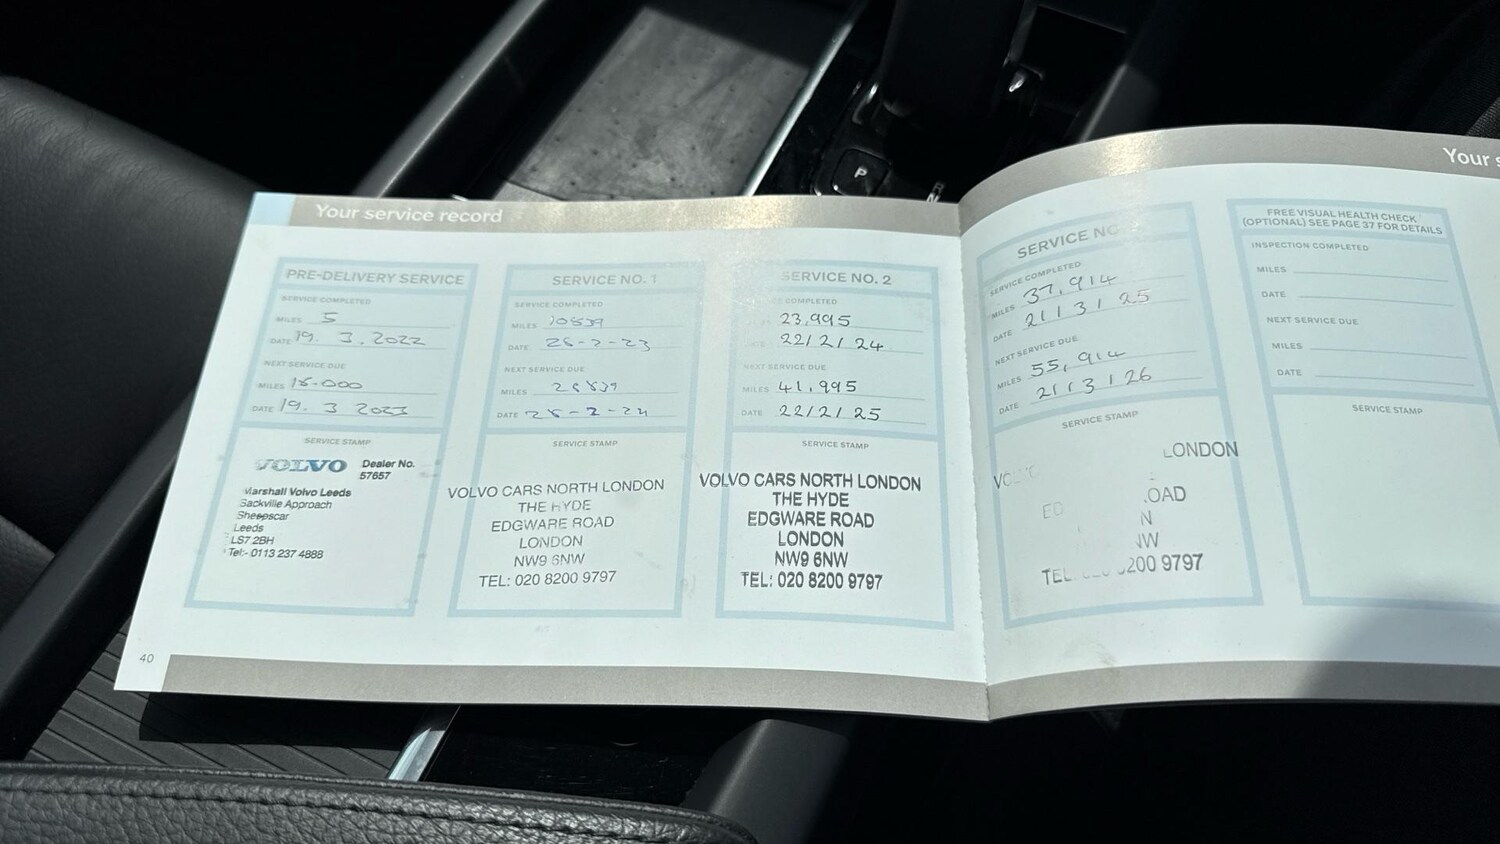 Your service record
PRE-DELIVERY SERVICE
SERVICE COMPLETED
MILES 5
DATE 19. 3. 2022
NEXT SERVICE DUE
MILES 18.000
DATE 19. 3 2023
SERVICE STAMP
VOLVO Dealer No.
57657
Marshall Volvo Leeds
Sackville Approach
Sheepscar
Leeds
LS7 2BH
Tel:- 0113 237 4888
40
SERVICE NO. 1
SERVICE COMPLETED
MILES 10839
DATE 28-2-23
NEXT SERVICE DUE
MILES 28839
DATE 28-2-24
SERVICE STAMP
VOLVO CARS NORTH LONDON
THE HYDE
EDGWARE ROAD
LONDON
NW9 6NW
TEL: 020 8200 9797
SERVICE NO. 2
COMPLETED
23,995
22/2/24
NEXT SERVICE DUE
MILES 41,995
DATE 22/2/25
SERVICE STAMP
VOLVO CARS NORTH LONDON
THE HYDE
EDGWARE ROAD
LONDON
NW9 6NW
TEL: 020 8200 9797
Your
SERVICE NO
SERVICE COMPLETED
MILES 37,914
DATE 21/3/25
NEXT SERVICE DUE
MILES 55,914
DATE 21/3/26
SERVICE STAMP
LONDON
OAD
N
NW
TEL: 8200 9797
FREE VISUAL HEALTH CHECK
(OPTIONAL) SEE PAGE 37 FOR DETAILS
INSPECTION COMPLETED
MILES
DATE
NEXT SERVICE DUE
MILES
DATE
SERVICE STAMP
P
R
N